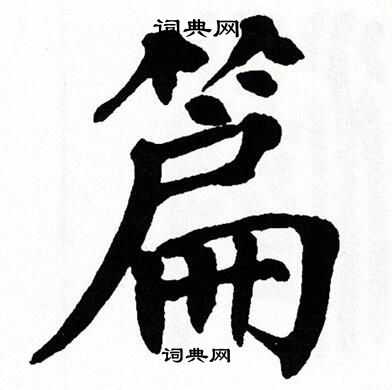 词典网
篇
词典网